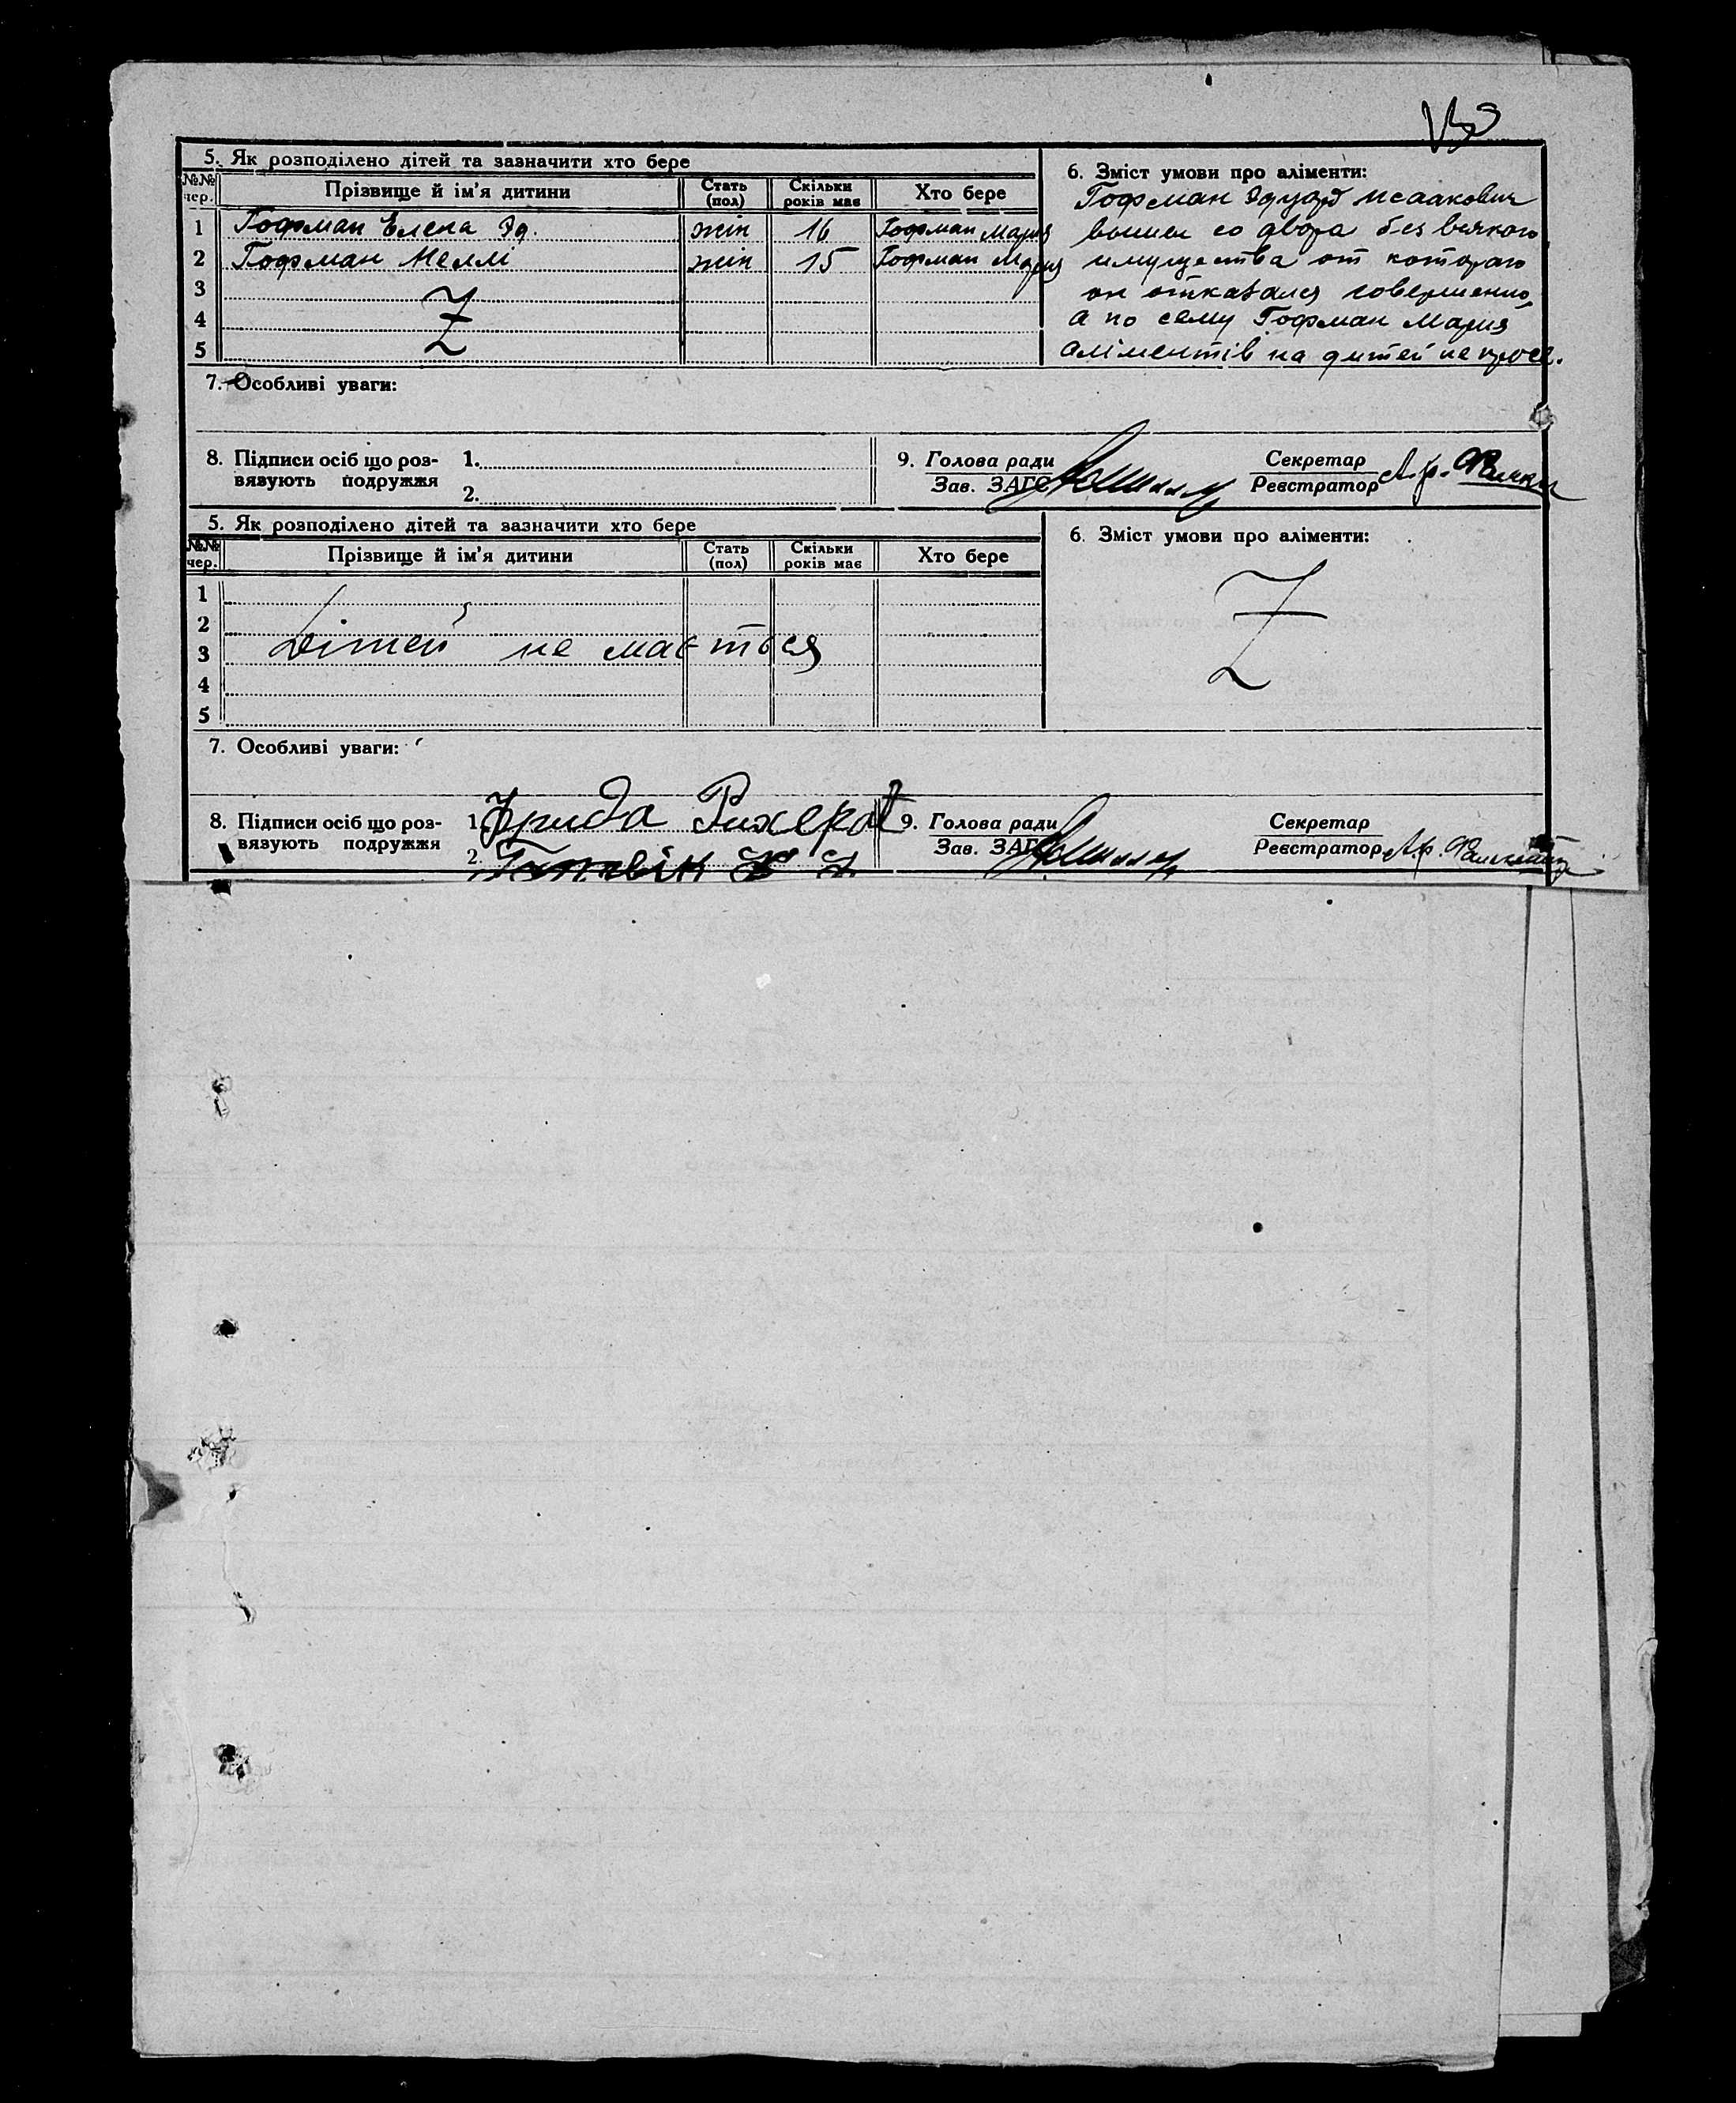 5. Як розподілено дітей та зазначити хто бере
№№ чер. Прізвище й ім'я дитини Стать (пол) Скільки років має Хто бере
1 Гофман Елена Эд. жін 16 Гофман Мария
2 Гофман Неллі жін 15 Гофман Мария
3
4
5
6. Зміст умови про аліменти:
Гофман Эдуард Исаакович
вышел со двора без всякого
имущества от котораго
он отказался совершенно,
а по сему Гофман Мария
аліментів на детей не просе.
7. Особливі уваги:
8. Підписи осіб що роз-
вязують подружжя
1.
2.
9. Голова ради
Зав. ЗАГС
Секретар
Реєстратор
5. Як розподілено дітей та зазначити хто бере
№№ чер. Прізвище й ім'я дитини Стать (пол) Скільки років має Хто бере
1
2
3 Дітей не мається
4
5
6. Зміст умови про аліменти:
Z
7. Особливі уваги:
8. Підписи осіб що роз-
вязують подружжя
1. Фрида
2.
9. Голова ради
Зав. ЗАГС
Секретар
Реєстратор